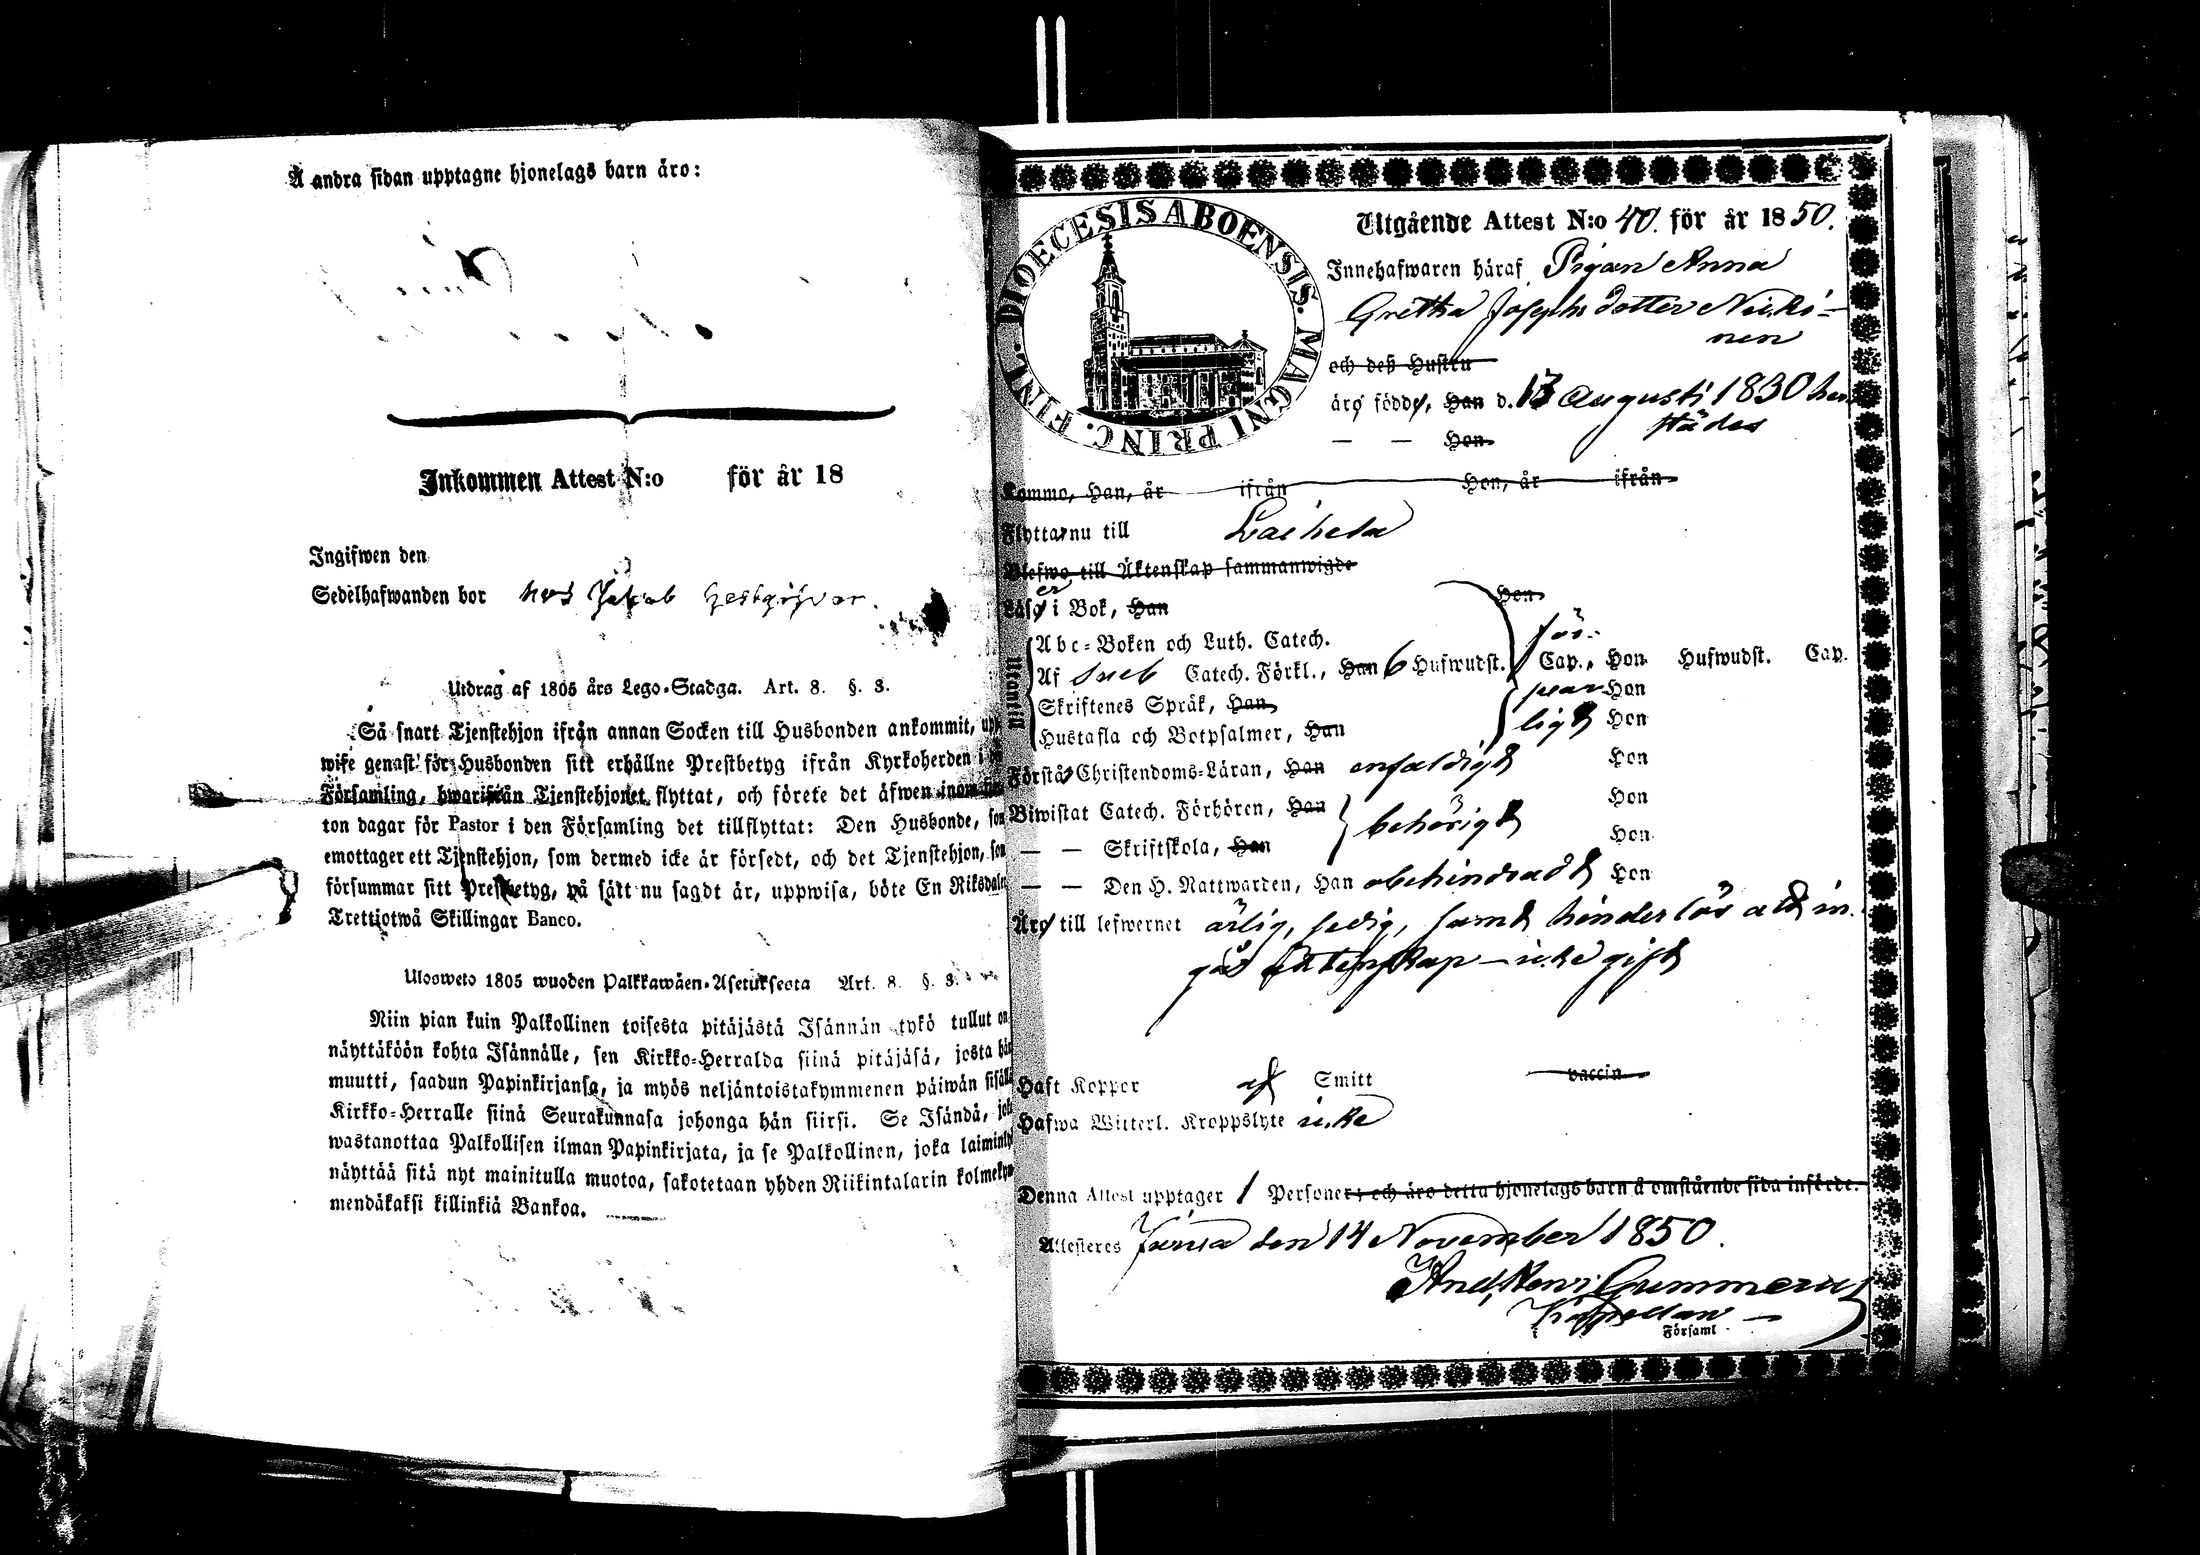 Å andra sidan upptagne hjonelags barn äro:
Inkommen Attest N:o för år 18
Ingifwen den
Sedelhafwanden bor hos Jakob
Utdrag af 1805 års Lego-Stadga. Art. 8. §. 3.
Så snart Tjenstehjon ifrån annan Socken till Husbonden ankommit, upp-
wise genast för Husbonden sitt erhållne Prestbetyg ifrån Kyrkoherden i
Församling, hwarifrån Tjenstehjonet flyttat, och förete det äfwen inom
ton dagar för Pastor i den Församling det tillflyttat: Den Husbonde, som
emottager ett Tjenstehjon, som dermed icke är försedt, och det Tjenstehjon, som
försummar sitt Prestbetyg, på sätt nu sagdt är, uppwisa, böte En Riksdaler
Trettiotwå Skillingar Banco.
Ulosweto 1805 wuoden Palkkawäen-Asetuksesta Art. 8. §. 3.
Niin pian kuin Palkollinen toisesta pitäjästä Isännän tykö tullut on
näyttäköön kohta Isännälle, sen Kirkko-Herralda siinä pitäjäsä, josta hän
muutti, saadun Papinkirjansa, ja myös neljäntoistakymmenen päiwän sisällä
Kirkko-Herralle siinä Seurakunnasa johonga hän siirsi. Se Isändä, joka
wastanottaa Palkollisen ilman Papinkirjata, ja se Palkollinen, joka laiminlyö
näyttää sitä nyt mainitulla muotoa, sakotetaan yhden Riikintalarin kolmekym-
mendäkaksi killinkiä Bankoa.
DIOECESIS ABOENSIS. MAGNI PRINC. FINL.
Utgående Attest N:o 40. för år 1850.
Innehafwaren häraf Pigan Anna
Gretha Josephsdotter Nicki-
nen
och deß Hustru
äro födde, Han d. 13 Augusti 1830 här-
städes
— — Hon
Kommo, Han, år ifrån Hon, år ifrån
Flyttar nu till Laihela
Blefwo till Äktenskap sammanwigde
er
Läsa i Bok, Han Hon
Utantill
Abc-Boken och Luth. Catech. för-
Af Sveb Catech. Förkl., Han 6 Hufwudst. Cap., Hon Hufwudst. Cap.
Skriftenes Språk, Han swar Hon
Hustafla och Botpsalmer, Han ligt Hon
Förstå Christendoms-Läran, Han enfaldigt Hon
Biwistat Catech. Förhören, Han behörigt Hon
— — Skriftskola, Han Hon
— — Den H. Nattwarden, Han obehindradt Hon
Äro till lefwernet ärlig, sedig, samt hinderlös att in-
gå Äktenskap — icke gift
Haft Koppor af Smitt vaccin
Hafwa Witterl. Kroppslyte icke
Denna Attest upptager 1 Personer: och äro detta hjonelags barn å omstående sida införde.
Attesteres den 14 November 1850.
And. Henr. Gummerus
Kapellan
Församl.